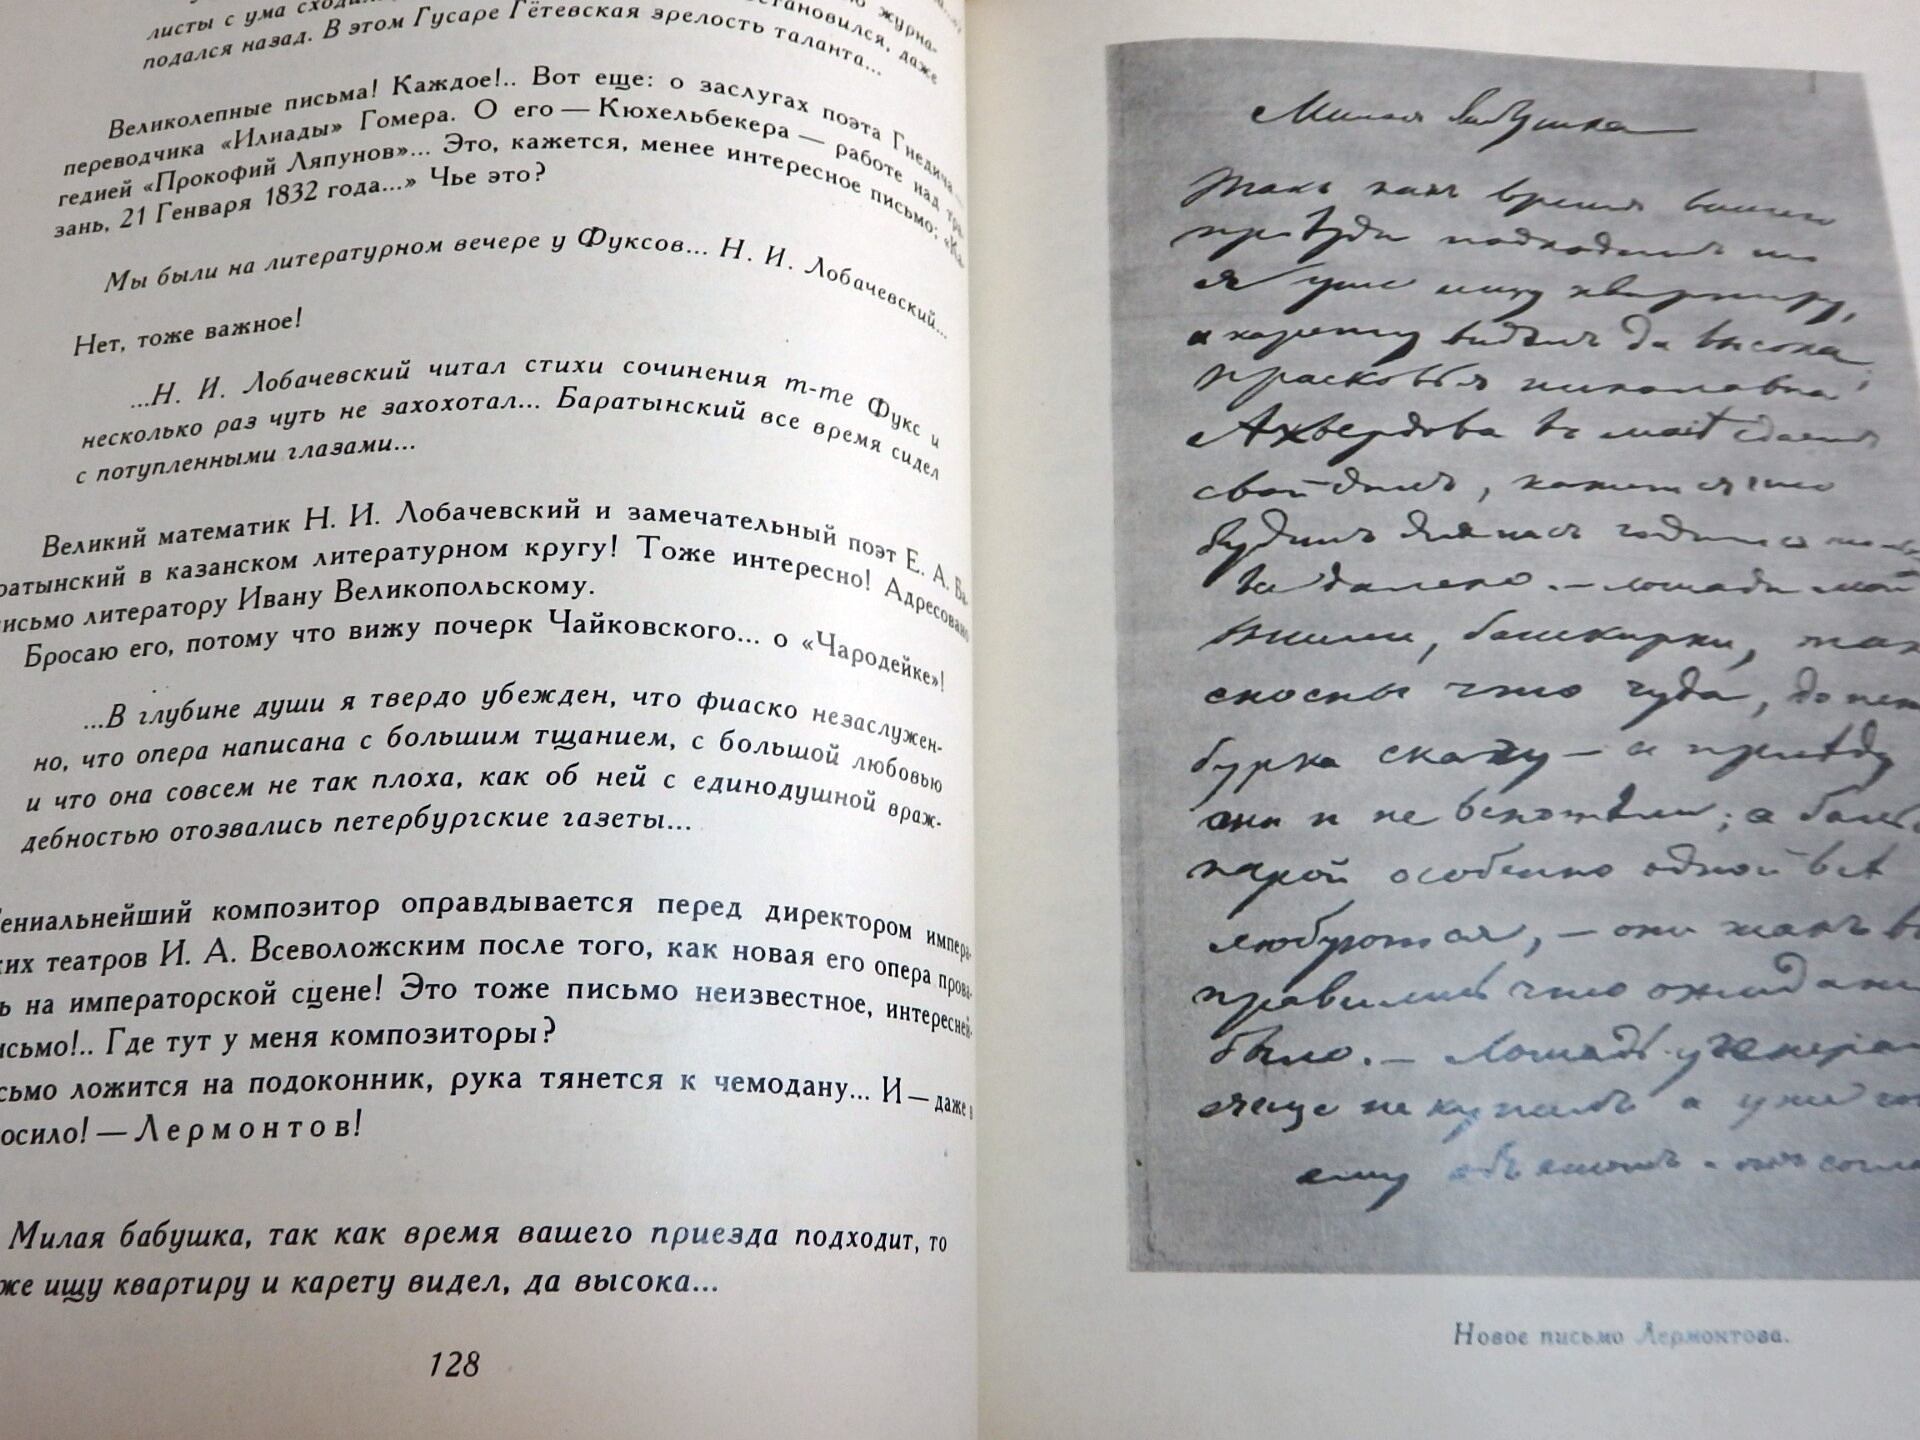 листы с ума
становился, даже
подался назад. В этом Гусаре Гётевская зрелость таланта...
Великолепные письма! Каждое!.. Вот еще: о заслугах поэта Гнедича —
переводчика «Илиады» Гомера. О его — Кюхельбекера — работе над тра-
гедией «Прокофий Ляпунов»... Это, кажется, менее интересное письмо; «Ка-
зань, 21 Генваря 1832 года...» Чье это?
Мы были на литературном вечере у Фуксов... Н. И. Лобачевский...
Нет, тоже важное!
...Н. И. Лобачевский читал стихи сочинения m-me Фукс и
несколько раз чуть не захохотал... Баратынский все время сидел
с потупленными глазами...
Великий математик Н. И. Лобачевский и замечательный поэт Е. А. Ба-
ратынский в казанском литературном кругу! Тоже интересно! Адресовано
исьмо литератору Ивану Великопольскому.
Бросаю его, потому что вижу почерк Чайковского... о «Чародейке»!
...В глубине души я твердо убежден, что фиаско незаслужен-
но, что опера написана с большим тщанием, с большой любовью
и что она совсем не так плоха, как об ней с единодушной враж-
дебностью отозвались петербургские газеты...
ениальнейший композитор оправдывается перед директором импера-
ких театров И. А. Всеволожским после того, как новая его опера прова-
ь на императорской сцене! Это тоже письмо неизвестное, интересней-
исьмо!.. Где тут у меня композиторы?
сьмо ложится на подоконник, рука тянется к чемодану... И — даже в
осило! — Лермонтов!
Милая бабушка, так как время вашего приезда подходит, то
же ищу квартиру и карету видел, да высока...
128
Милая бабушка
Такъ какъ время вашего
приѣзда подходитъ то
я уже ищу квартиру,
и карету видѣлъ да высока,
Прасковья николавна
Ахвердова въ маѣ сдаетъ
свой домъ, кажется что
будитъ для насъ годится только
все далеко. — лошади мой
башкирки, так
сносны что чуда, до пет
бурка скачу — а приѣду
они и не вспотѣли; а боль
парой особенно одной всѣ
любуются, — они такъ вы
правились что ожидани
было. — Лошадь у генера
еще не купилъ а уже го
ему объ этомъ и онъ согла
Новое письмо Лермонтова.